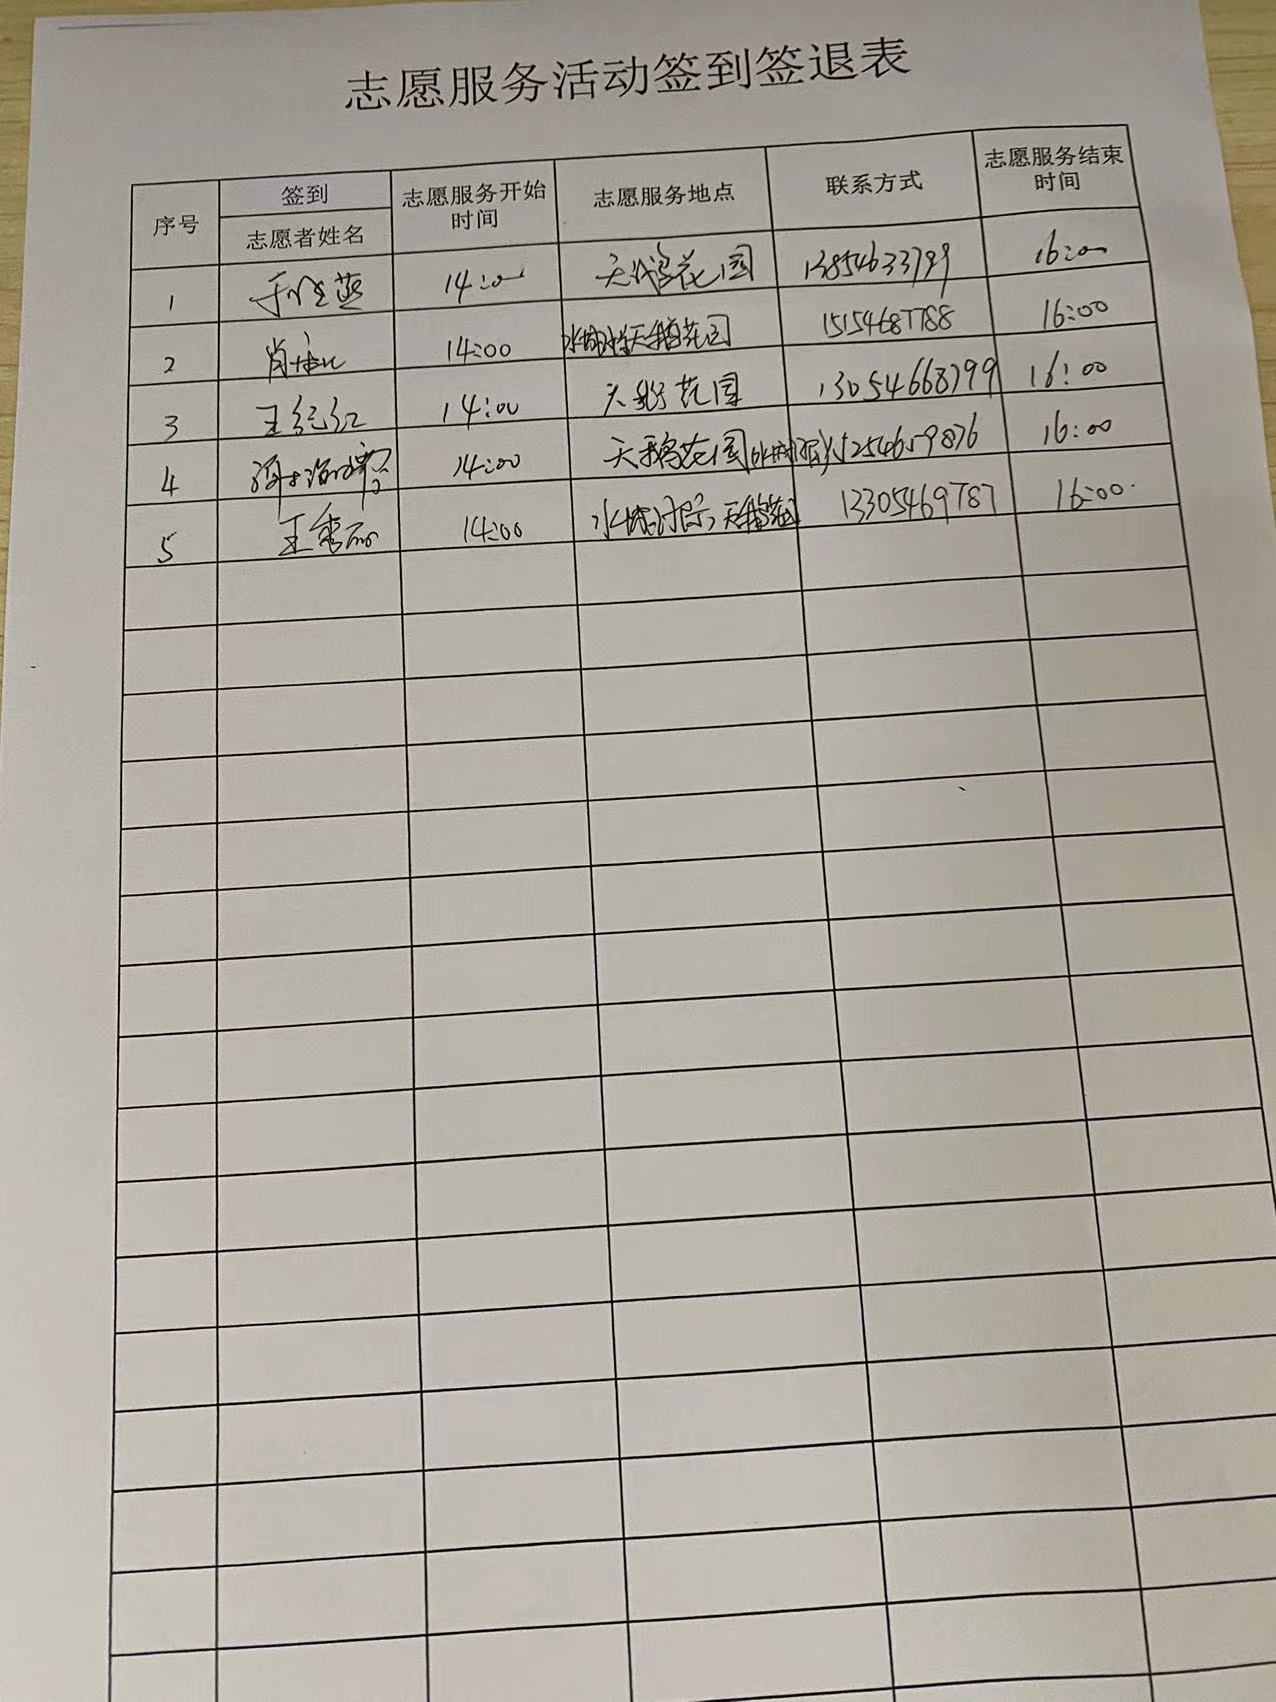 志愿服务活动签到签退表
序号 签到 志愿服务开始时间 志愿服务地点 联系方式 志愿服务结束时间
志愿者姓名
1 14:00 天鹅花园 13854633799 16:00
2 14:00 天鹅花园 15154687788 16:00
3 王红红 14:00 天鹅花园 13054668799 16:00
4 14:00 天鹅花园 15254659876 16:00
5 王秀丽 14:00 天鹅花园 13305469787 16:00